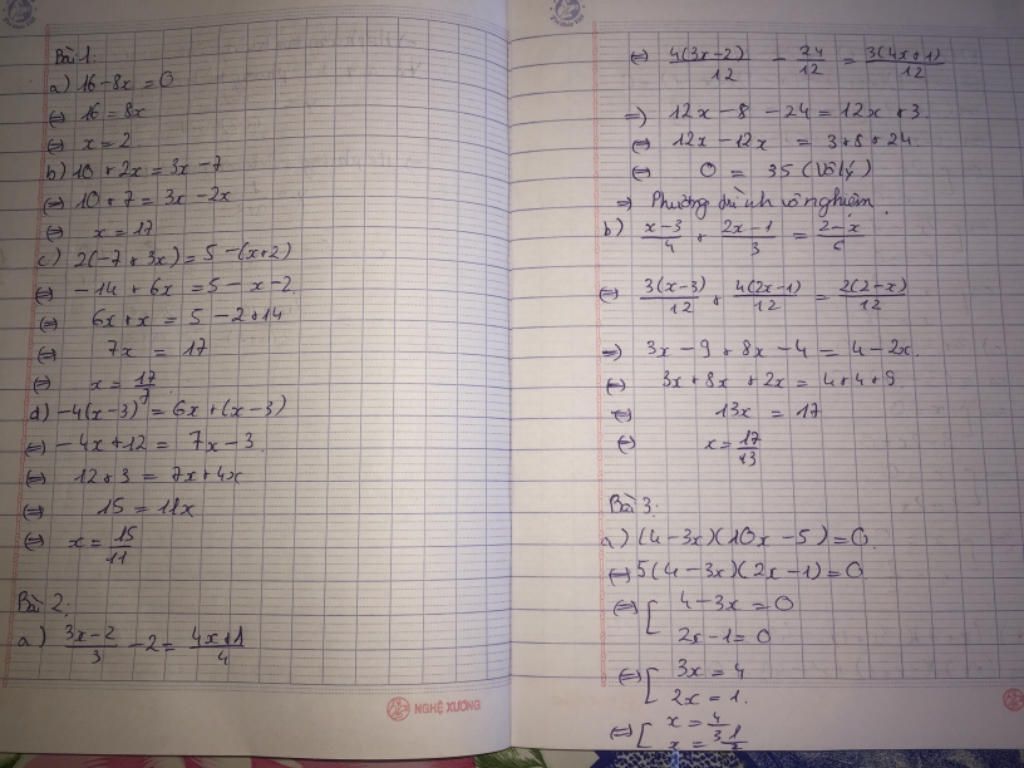 Bài 1:
a) 16 - 8x = 0
⇔ 16 = 8x
⇔ x = 2
b) 10 + 2x = 3x - 7
⇔ 10 + 7 = 3x - 2x
⇔ x = 17
c) 2(-7 + 3x) = 5 - (x+2)
⇔ -14 + 6x = 5 - x - 2
⇔ 6x + x = 5 - 2 + 14
⇔ 7x = 17
⇔ x = 17/7
d) -4(x-3) = 6x + (x-3)
⇔ -4x + 12 = 7x - 3
⇔ 12 + 3 = 7x + 4x
⇔ 15 = 11x
⇔ x = 15/11
Bài 2:
a) (3x-2)/3 - 2 = (4x+1)/4
NGHỆ XƯƠNG
⇔ 4(3x-2)/12 - 24/12 = 3(4x+1)/12
⇒ 12x - 8 - 24 = 12x + 3
⇔ 12x - 12x = 3 + 8 + 24
⇔ 0 = 35 (Vô lý)
⇒ Phương trình vô nghiệm.
b) (x-3)/4 + (2x-1)/3 = (2-x)/6
⇔ 3(x-3)/12 + 4(2x-1)/12 = 2(2-x)/12
⇒ 3x - 9 + 8x - 4 = 4 - 2x
⇔ 3x + 8x + 2x = 4 + 4 + 9
⇔ 13x = 17
⇔ x = 17/13
Bài 3:
a) (4-3x)(10x-5) = 0
⇔ 5(4-3x)(2x-1) = 0
⇔ [ 4 - 3x = 0
2x - 1 = 0
⇔ [ 3x = 4
2x = 1.
⇔ [ x = 4/3
x = 1/2